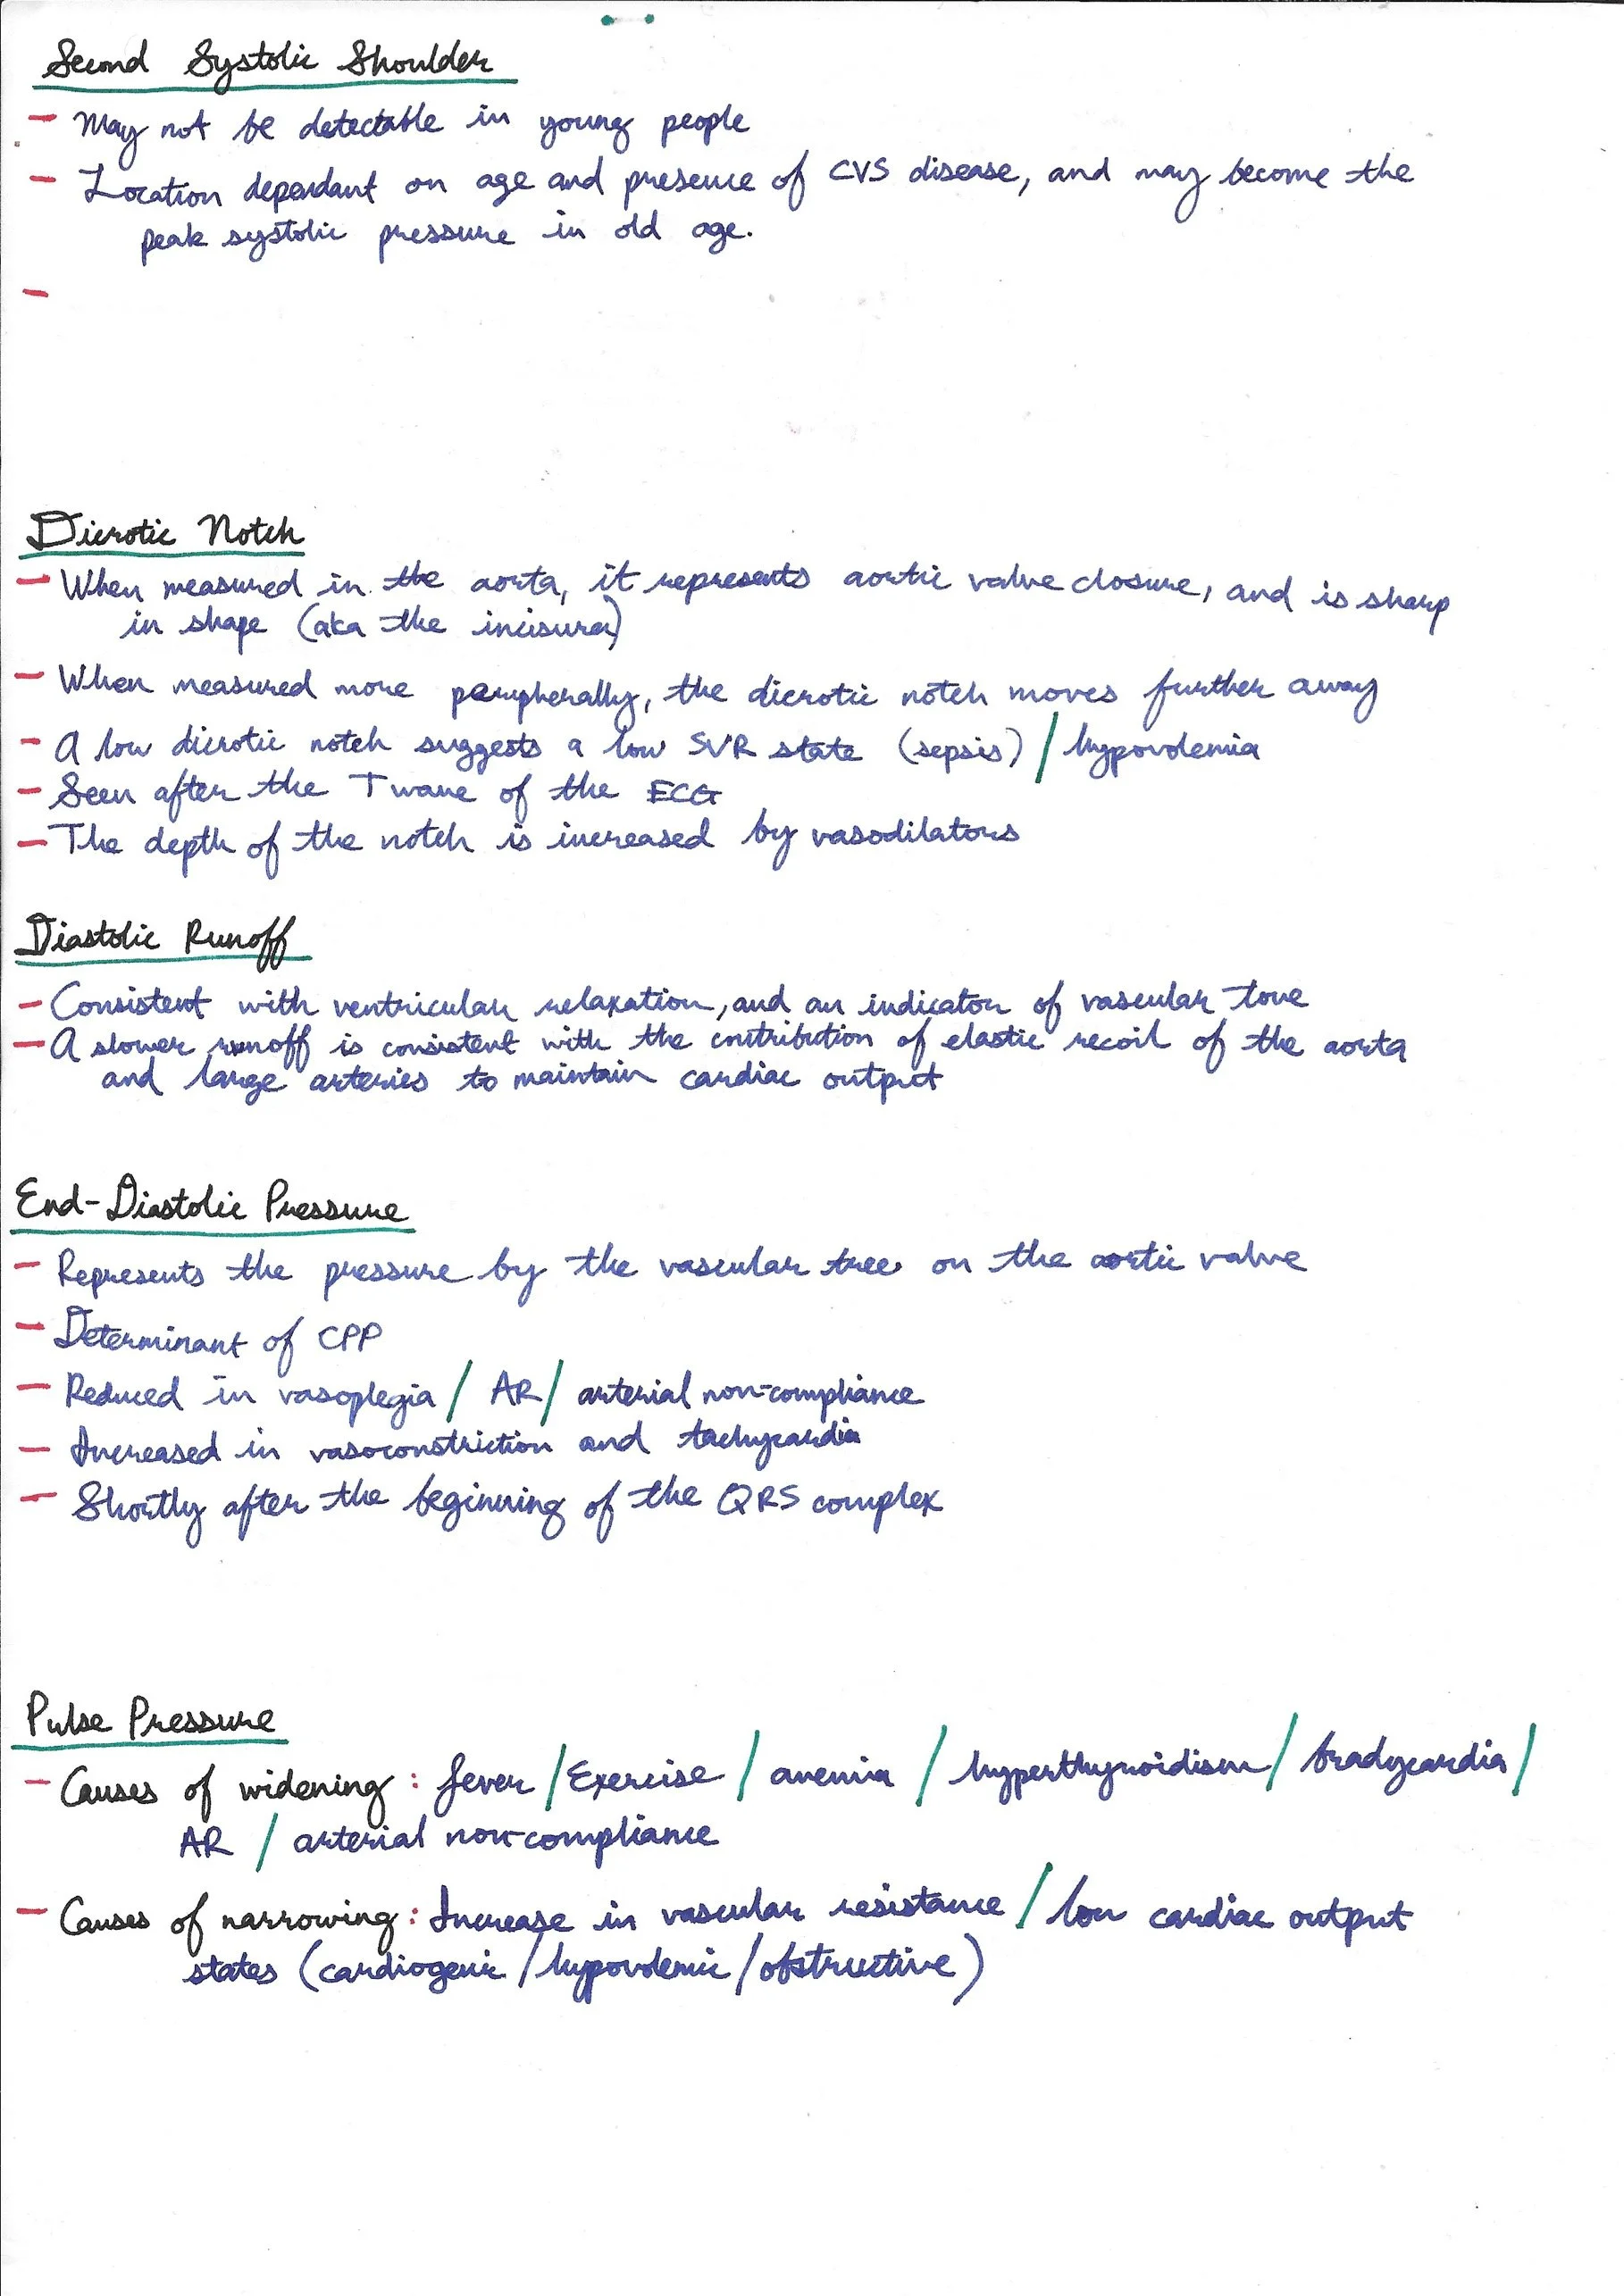 Second Systolic Shoulder
- May not be detectable in young people
- Location dependant on age and presence of CVS disease, and may become the
peak systolic pressure in old age.
-
Dicrotic Notch
- When measured in the aorta, it represents aortic valve closure, and is sharp
in shape (aka the incisura)
- When measured more peripherally, the dicrotic notch moves further away
- A low dicrotic notch suggests a low SVR state (sepsis) / hypovolemia
- Seen after the T wave of the ECG
- The depth of the notch is increased by vasodilators
Diastolic Runoff
- Consistent with ventricular relaxation, and an indicator of vascular tone
- A slower runoff is consistent with the contribution of elastic recoil of the aorta
and large arteries to maintain cardiac output
End-Diastolic Pressure
- Represents the pressure by the vascular tree on the aortic valve
- Determinant of CPP
- Reduced in vasoplegia / AR / arterial non-compliance
- Increased in vasoconstriction and tachycardia
- Shortly after the beginning of the QRS complex
Pulse Pressure
- Causes of widening: fever / Exercise / anemia / hyperthyroidism / bradycardia /
AR / arterial non-compliance
- Causes of narrowing: Increase in vascular resistance / low cardiac output
states (cardiogenic / hypovolemic / obstructive)